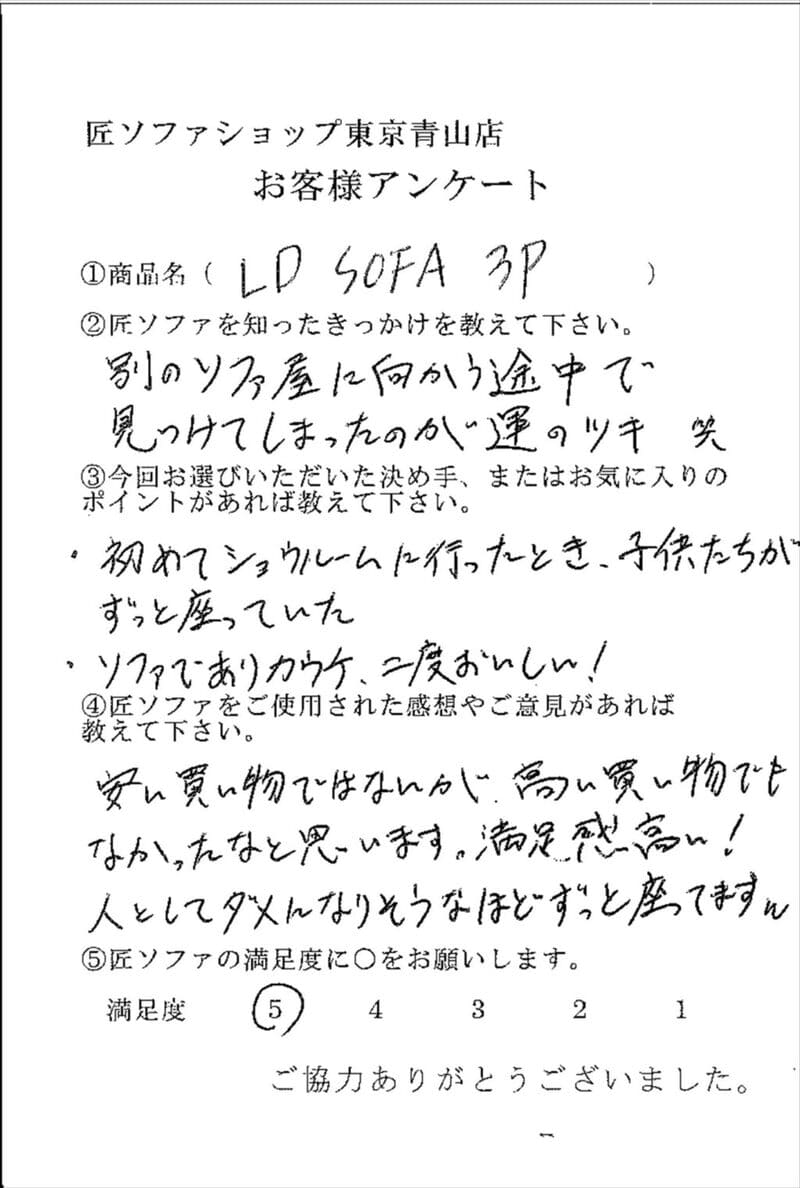 匠ソファショップ東京青山店
お客様アンケート
①商品名（ LD SOFA 3P ）
②匠ソファを知ったきっかけを教えて下さい。
別のソファ屋に向かう途中で
見つけてしまったのが運のツキ 笑
③今回お選びいただいた決め手、またはお気に入りの
ポイントがあれば教えて下さい。
・初めてショウルームに行ったとき、子供たちが
ずっと座っていた
・ソファでありカウチ、二度おいしい！
④匠ソファをご使用された感想やご意見があれば
教えて下さい。
安い買い物ではないが、高い買い物でも
なかったなと思います。満足感高い！
人としてダメになりそうなほどずっと座ってます
⑤匠ソファの満足度に○をお願いします。
満足度 5 4 3 2 1
ご協力ありがとうございました。